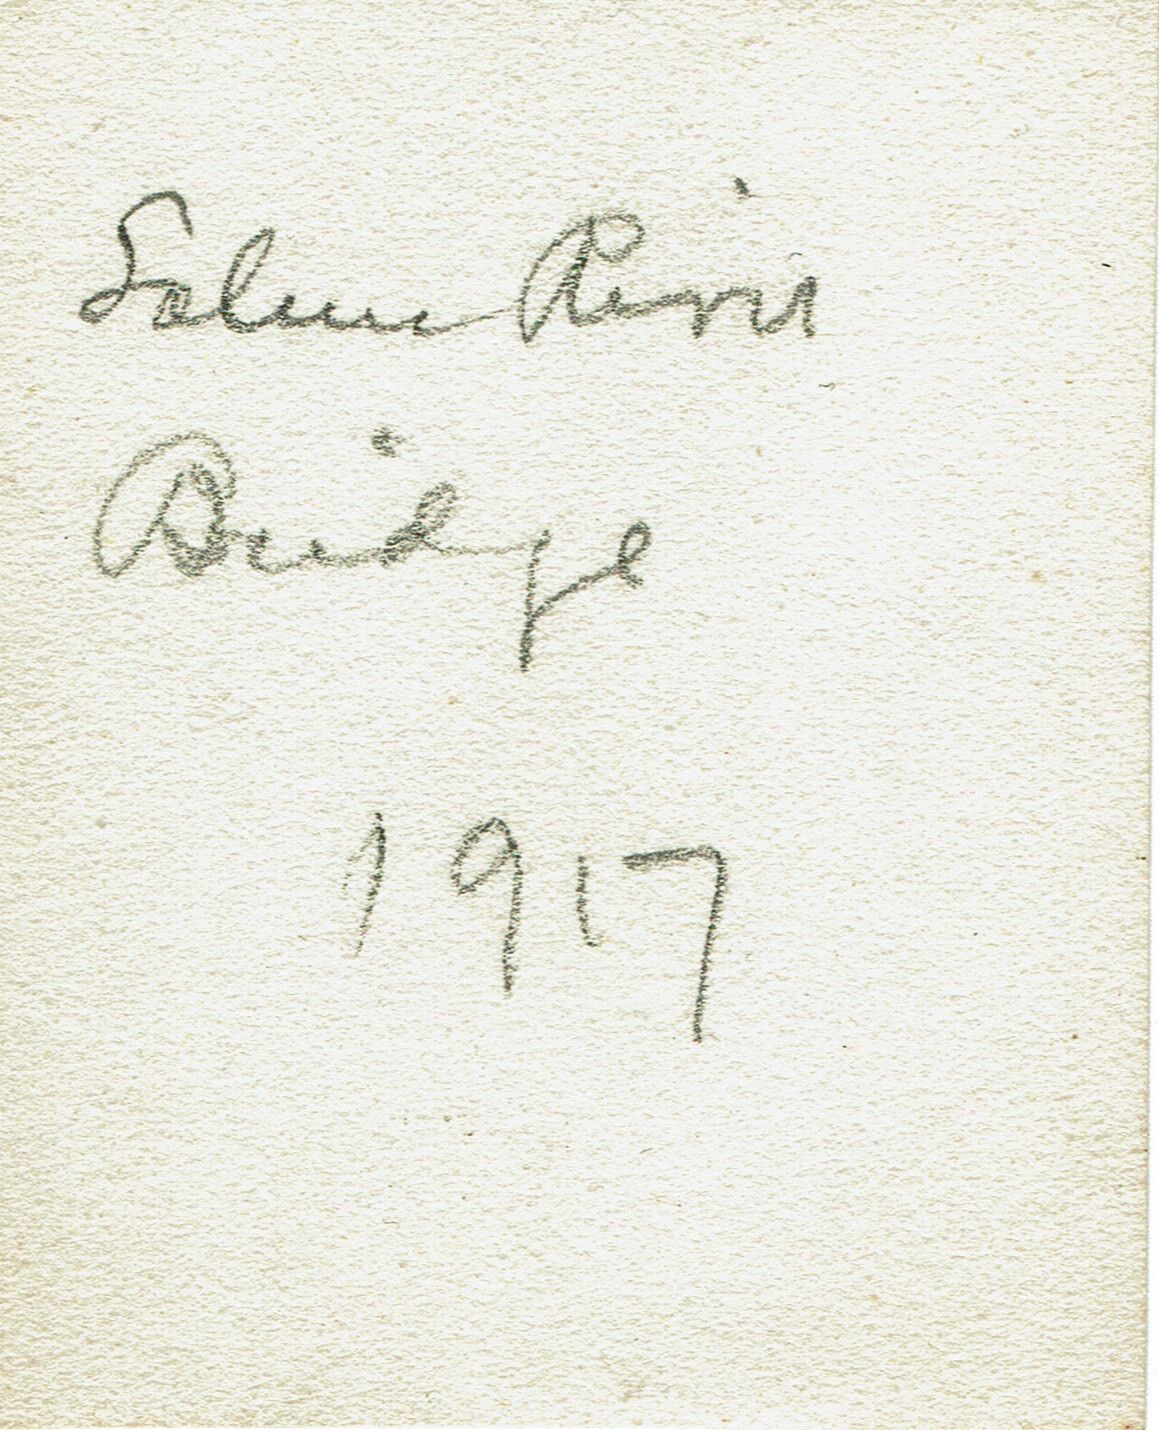 Salmon River
Bridge
1917